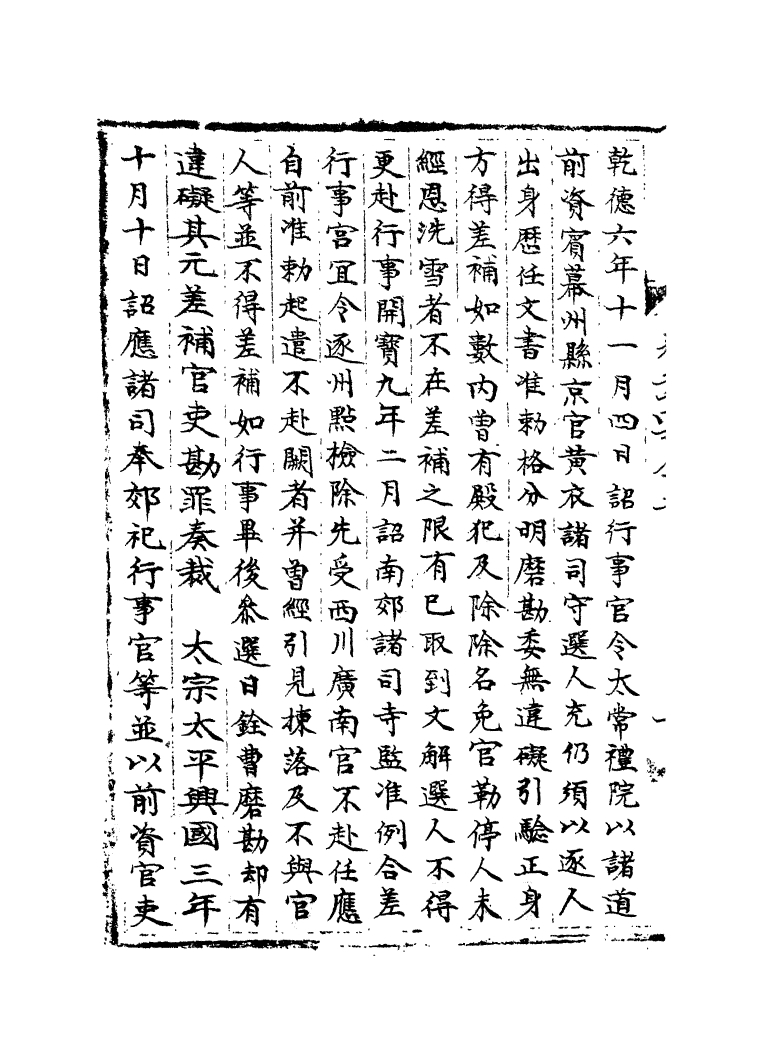 乾德六年十一月四日詔行事官令太常禮院以諸道
前資賓幕州縣京官黃衣諸司守選人充仍須以逐人
出身歷任文書准勑格分明磨勘委無違礙引驗正身
方得差補如數內曾有殿犯及除除名免官勒停人未
經恩洗雪者不在差補之限有已取到文解選人不得
更赴行事開寶九年二月詔南郊諸司寺監准例合差
行事官宜令逐州點檢除先受西川廣南官不赴任應
自前准勑起遣不赴闕者并曾經引見揀落及不與官
人等並不得差補如行事畢後叅選日銓曹磨勘却有
違礙其元差補官吏勘罪奏裁　太宗太平興國三年
十月十日詔應諸司奉郊祀行事官等並以前資官吏